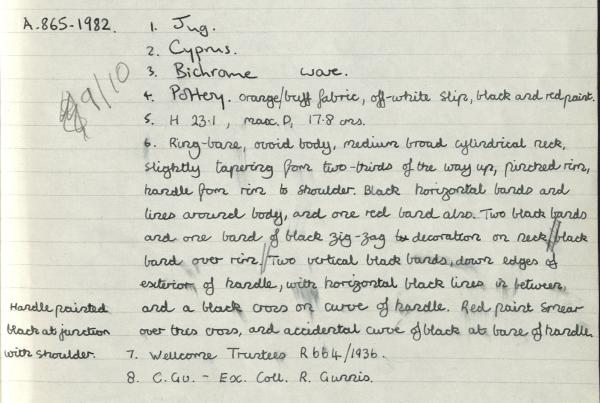 A.865-1982.
1. Jug.
2. Cyprus.
3. Bichrome ware.
9/10
4. Pottery. orange/buff fabric, off-white slip, black and red paint.
5. H 23.1, max. D, 17.8 cms.
6. Ring-base, ovoid body, medium broad cylindrical neck,
slightly tapering from two-thirds of the way up, pinched rim,
handle from rim to shoulder. Black horizontal bands and
lines around body, and one red band also. Two black bands
and one band of black zig-zag decoration on neck, black
band over rim. Two vertical black bands, down edges of
exterior of handle, with horizontal black lines in between,
and a black cross on curve of handle. Red paint smear
over this cross, and accidental curve of black at base of handle.
Handle painted
black at junction
with shoulder.
7. Wellcome Trustees R664/1936.
8. C. Gu. - Ex. Coll. R. Gunnis.